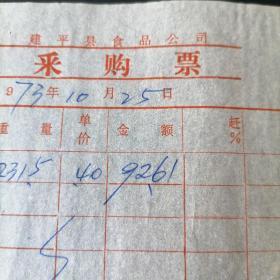 建平县食品公司
釆购票
973年10月25日
重量 单价 金额 赶%
2315 40 9261